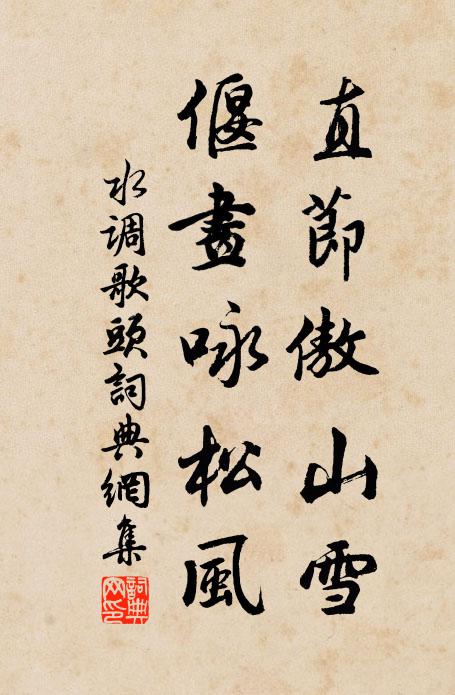 直節傲山雪
偃畫咏松風
水调歌頭詞典網集
詞典